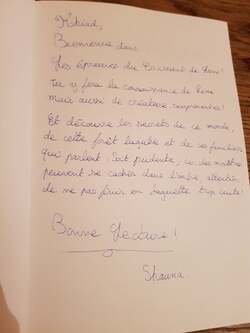 Bienvenue dans
Les épreuves du
Tu y feras la connaissance de
mais aussi de créatures surprenantes !
Et découvre les secrets de ce monde,
de cette forêt lugubre et de ses
qui parlent. Soit prudente, car des
peuvent se cacher dans l'ombre, attention
de ne pas finir en trop cuite !
Bonne Lecture !
Shauna